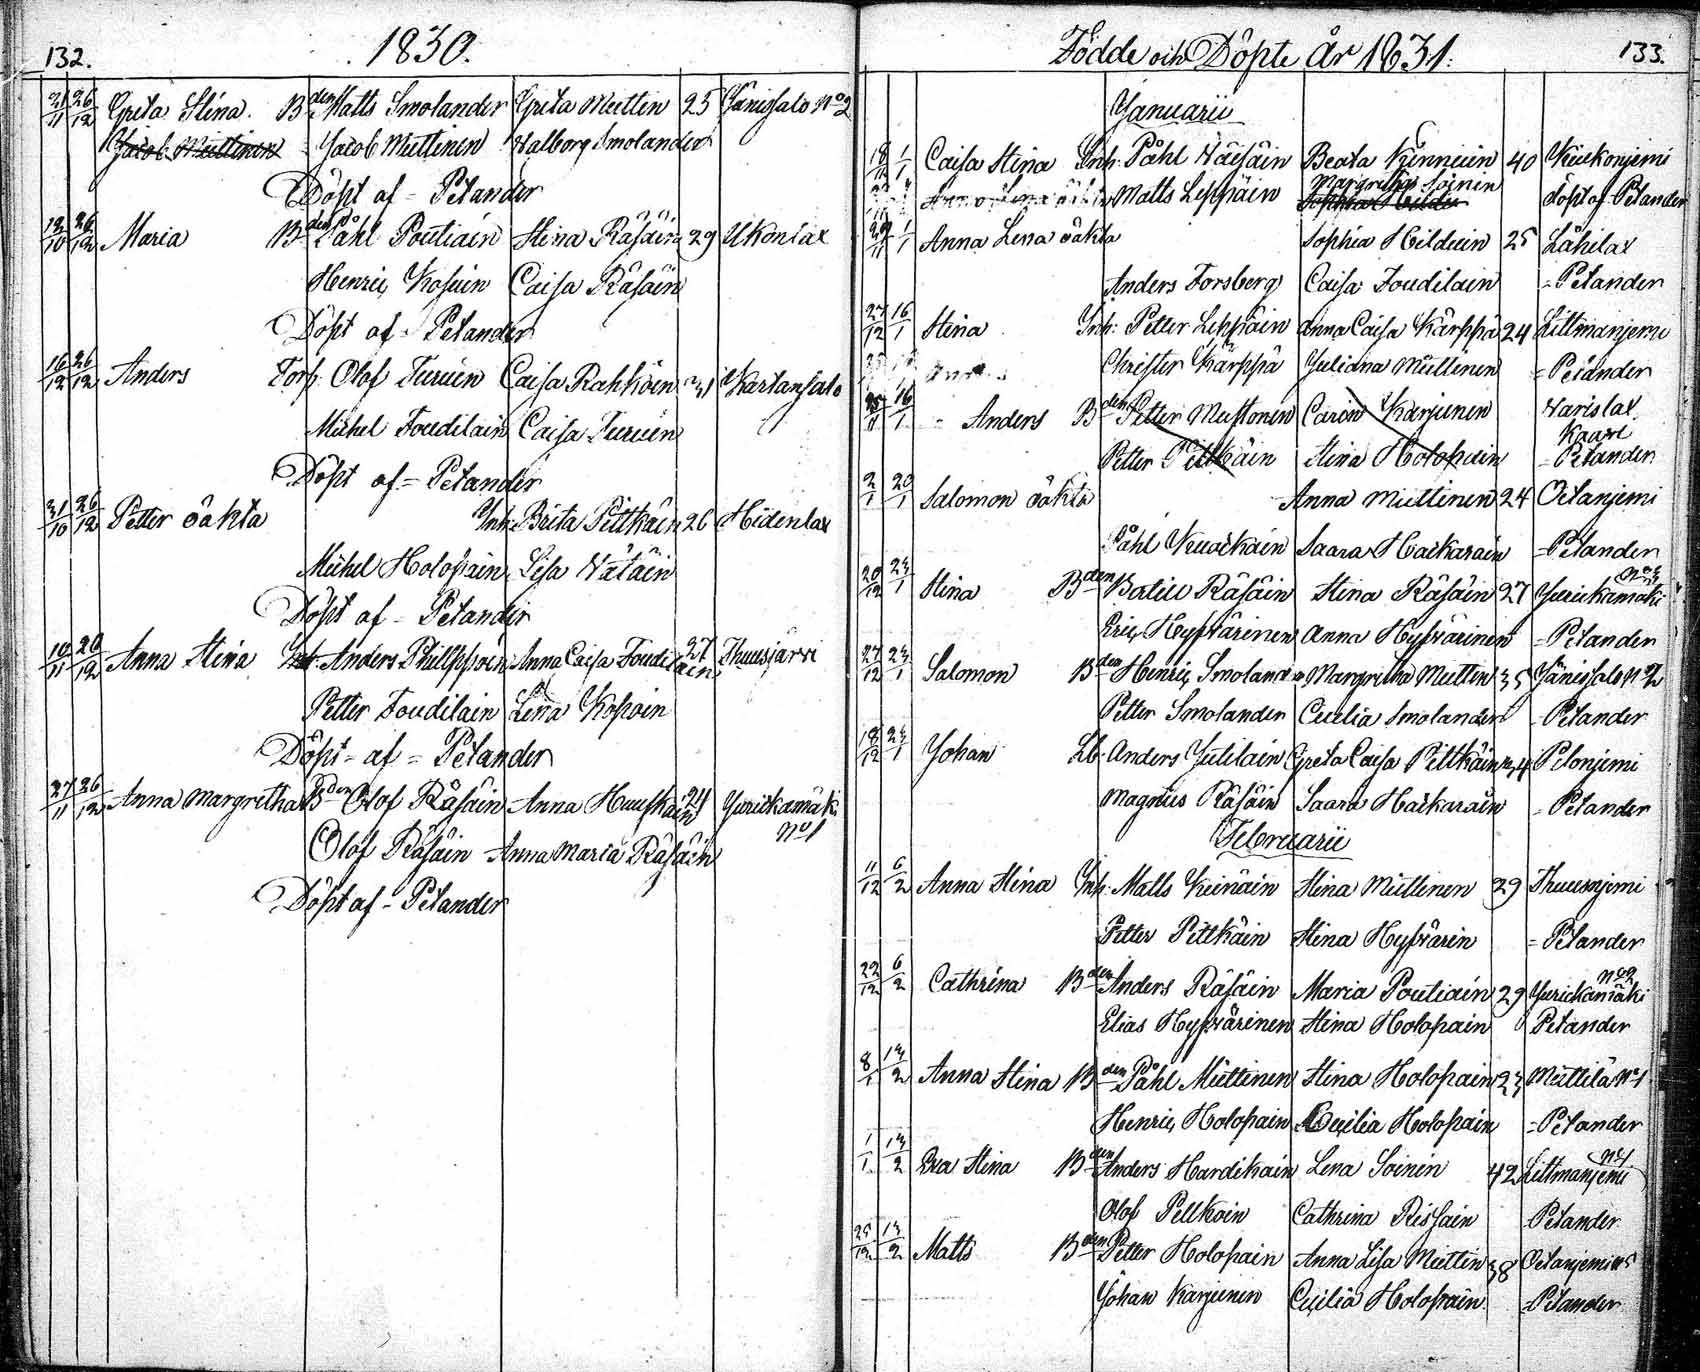 132. 1830.
21/11 26/12 Greta Stina. Bden Matts Smolander Greta Muttin 25 Jänissalo No 2
Jacob Muttinen Jacob Muttinen Walborg Smolander
Döpt af = Petander
12/10 26/12 Maria Bden Påhl Poutiain Stina Räsäin 29 Ukonlax
Henric Kosuin Caisa Räsäin
Döpt af = Petander
16/12 26/12 Anders Torp: Olof Turuin Caisa Rahkoin 31 Kartansalo
Michel Toudilain Caisa Turuin
Döpt af = Petander
31/10 26/12 Petter oäkta Inh: Brita Pittkäin 26 Hidenlax
Michel Holopain Lisa Wätäin
Döpt af = Petander
10/11 26/12 Anna Stina Inh: Anders Philppoin Anna Caisa Toudilain 27 Thuusjärvi
Petter Toudilain Lena Kopoin
Döpt = af = Petander
27/11 26/12 Anna Margretha Bden Olof Räsäin Anna Huuskain 24 Jurickamäki
No 1
Olof Räsäin Anna Maria Räsäin
Döpt af = Petander
Födde och Döpte År 1831. 133.
Januarii
18/12 1/1 Caisa Stina Inh: Påhl Wäisäin Beata Kinnuin 40 Kiukonjemi
Matts Leppäin Margretha Soinin döpt af Petander
29/11 1/1 Anna Lena oäkta Sophia Hilduin 25 Lähilax
Anders Forsberg Caisa Toudilain = Petander
27/12 16/1 Stina Inh: Petter Leppäin Anna Caisa Kärppä 24 Littmanjemi
Christer Kärppä Juliana Muttinen = Petander
25/11 16/1 Anders Bden Petter Mustonen Carin Karjunen Varislax
Kaavi
Petter Pittkäin Stina Holopain = Petander
2/1 20/1 Salomon oäkta Anna Muttinen 24 Oitanjemi
Påhl Kuockain Saara Hackarain = Petander
20/12 23/1 Stina Bden Batier Räsäin Stina Räsäin 27 Jurickamäki No 3
Eric Hyfvärinen Anna Hyfvärinen = Petander
27/12 23/1 Salomon Bden Henric Smolander Margretha Muttin 35 Jänissalo No 2
Petter Smolander Cecilia Smolander Petander
18/12 23/1 Johan Lb: Anders Julilain Greta Caisa Pittkäin 34 Petonjemi
Magnus Räsäin Saara Hackarain = Petander
Februarii
11/12 6/2 Anna Stina Inh: Matts Keinäin Stina Muttinen 29 Thuusnjemi
Petter Pittkäin Stina Hyfvärin = Petander
22/12 6/2 Cathrina Bden Anders Räsäin Maria Poutiain 29 Jurickamäki No 2
Elias Hyfvärinen Stina Holopain Petander
8/1 13/2 Anna Stina Bden Påhl Muttinen Stina Holopain 23 Muttilä No 1
Henric Holopain Cecilia Holopain = Petander
1/1 13/2 Eva Stina Bden Anders Hardikain Lena Soinin 42 Littmanjemi No 1
Olof Pellkoin Cathrina Rissain Petander
25/12 13/2 Matts Bden Petter Holopain Anna Lisa Muttin 38 Oitanjemi No 5
Johan Karjunen Cecilia Holopain = Petander